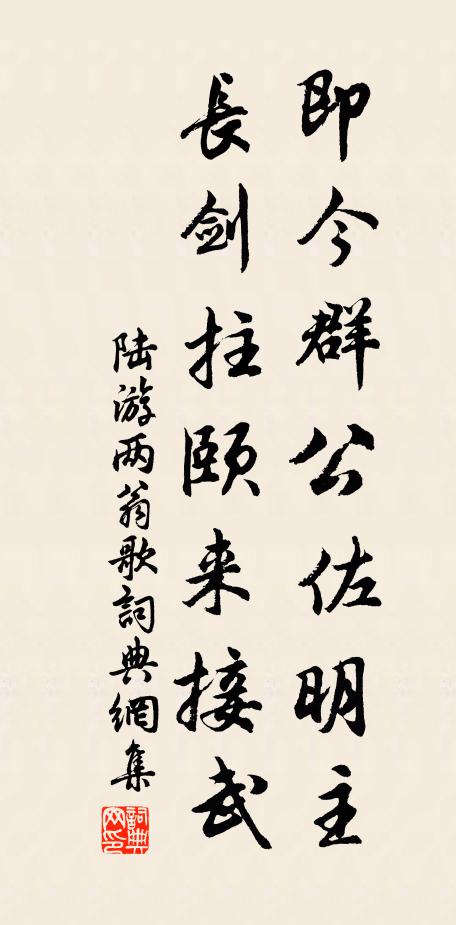 即今群公佐明主
長剑拄颐来接武
陆游两翁歌詞典網集
詞典网印